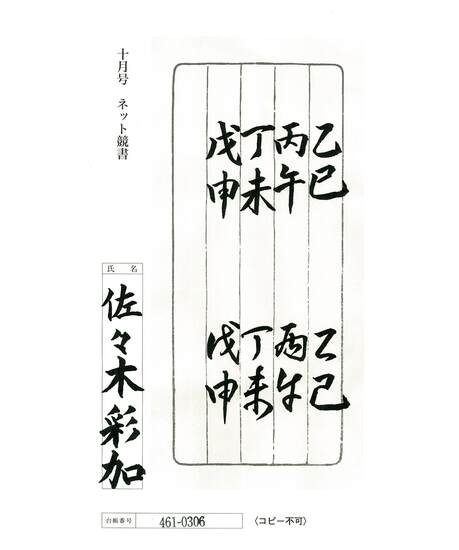 乙巳
丙午
丁未
戊申
乙巳
丙午
丁未
戊申
十月号 ネット競書
氏名
佐々木彩加
台帳番号 461-0306 〈コピー不可〉